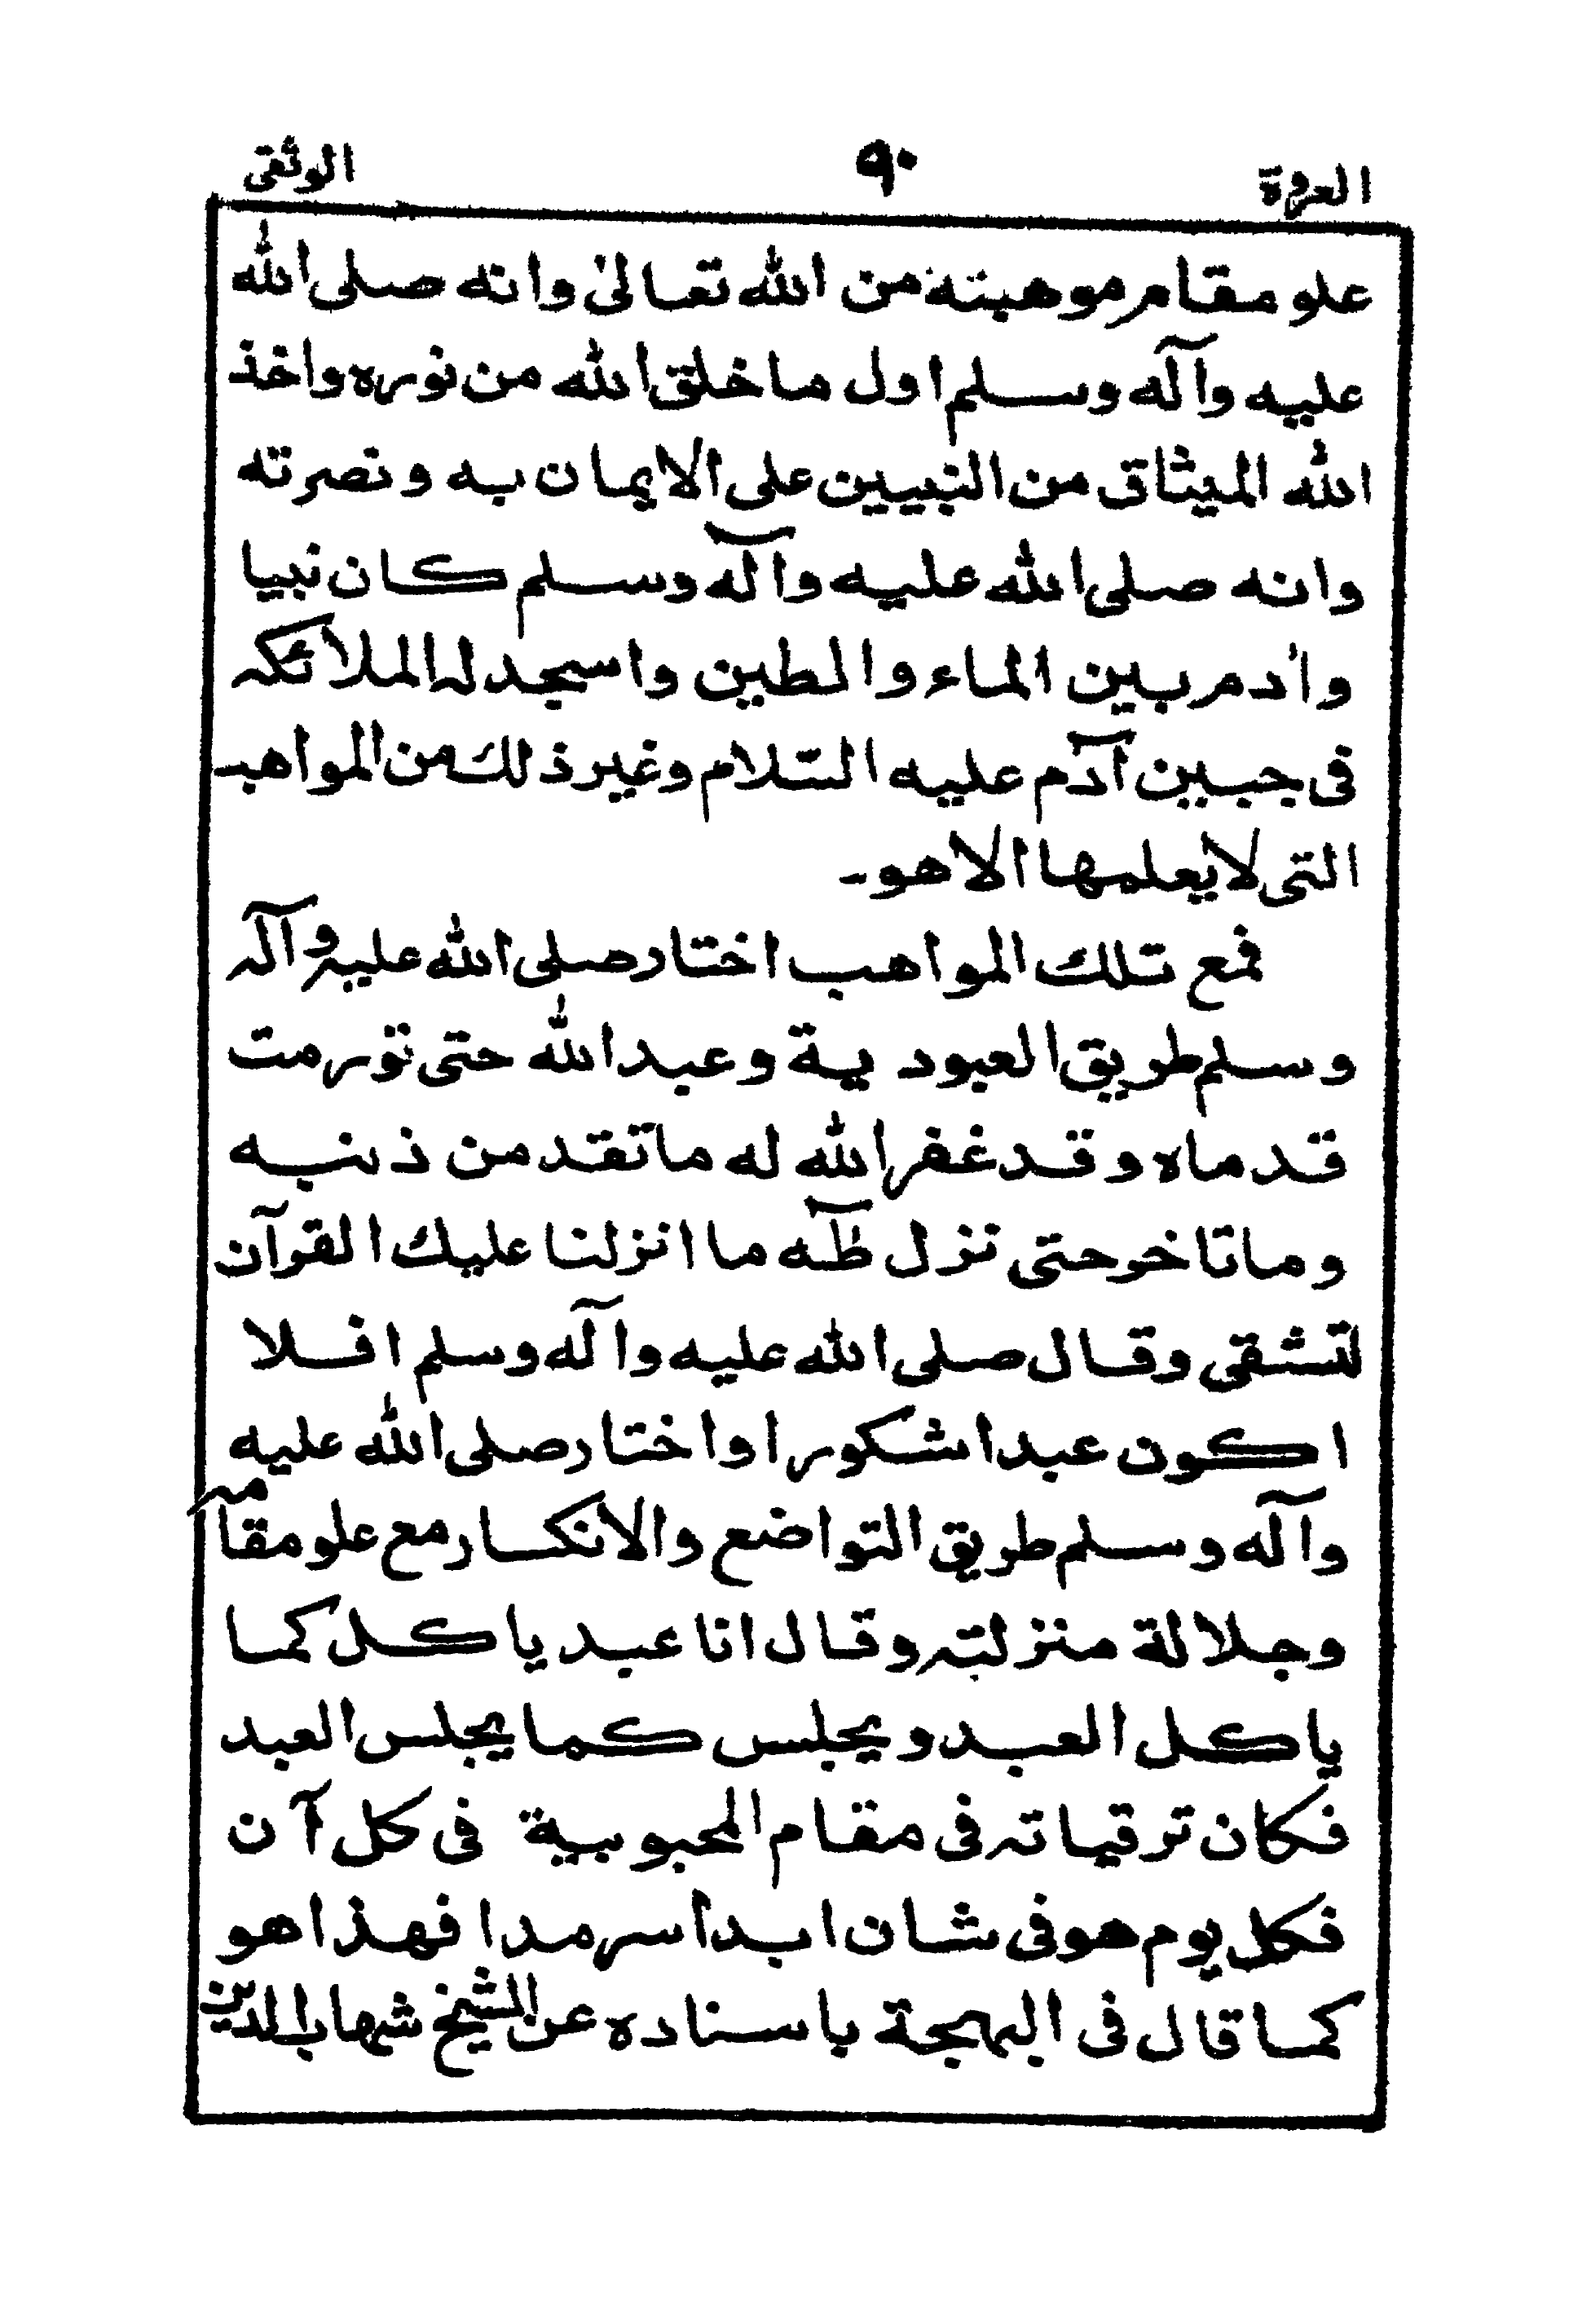 العروة ٩٠ الوثقى
علو مقام موهبته من الله تعالىٰ وانه صلى الله
عليه وآله وسلم اول ما خلق الله من نوره واخذ
الله الميثاق من النبيين على الايمان به ونصرته
وانه صلى الله عليه وآله وسلم كان نبيا
واٰدم بين الماء والطين واسجد له الملائكه
فى جبين آدم عليه السّلام وغير ذلك من المواهب
التى لا يعلمها الا هو۔
فمع تلك المواهب اختار صلى الله عليه وآله
وسلم طريق العبودية وعبد الله حتى تورمت
قدماه وقد غفر الله له ما تقد من ذنبه
وما تاخو حتى نزل طٓه ما انزلنا عليك القرآن
لتشقى وقال صلى الله عليه وآله وسلم افلا
اكون عبدا شكورا واختار صلى الله عليه
وآله وسلم طريق التواضع والانكسار مع علو مقامه
وجلالة منزلته وقال انا عبد ياكل كما
ياكل العبد ويجلس كما يجلس العبد
فكان ترقياته فى مقام المحبوبية فى كل آن
فكل يوم هو فى شان ابدا سرمدا فهذا هو
كما قال فى البهجة باسناده عن الشيخ شهاب الدين